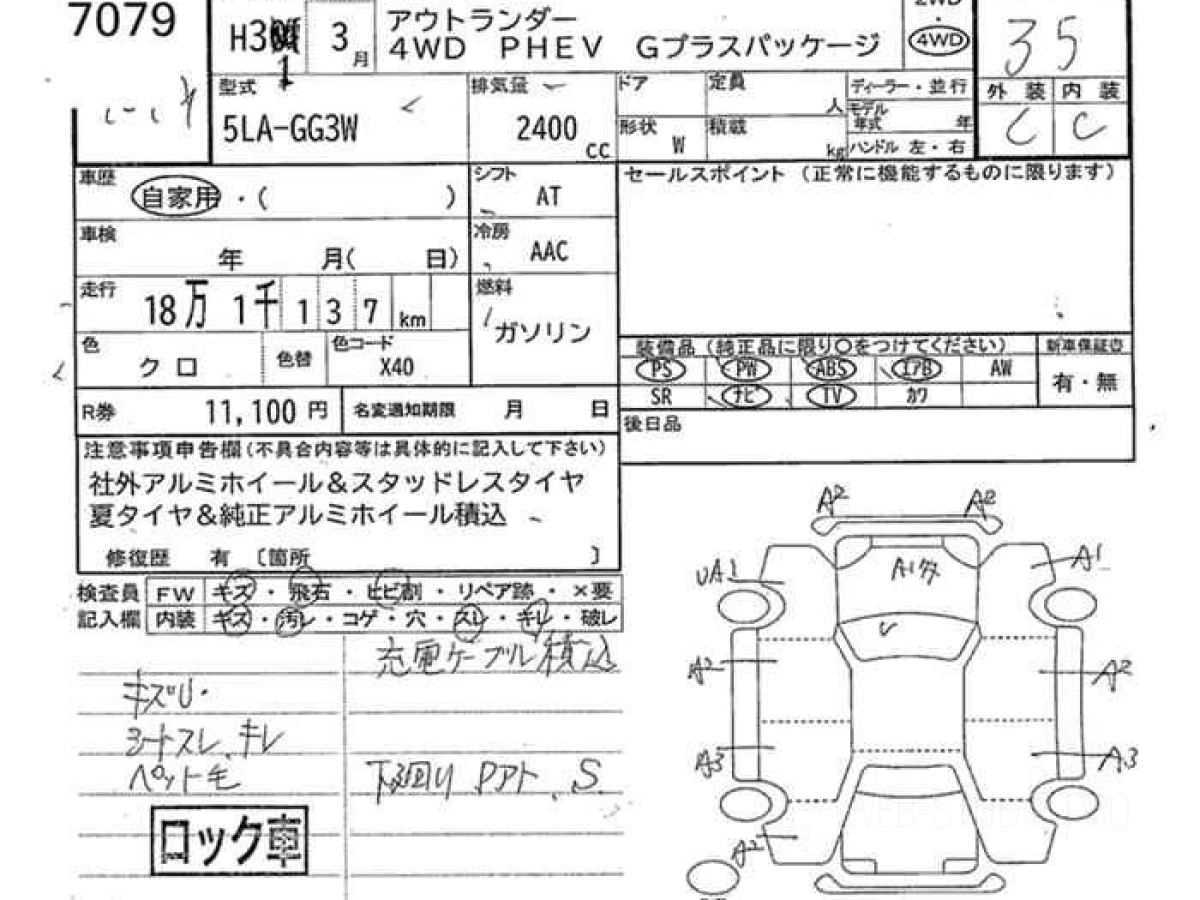 7079
H31 3月
アウトランダー
4WD PHEV Gプラスパッケージ
2WD
・
4WD
35
外装 内装
C C
型式
5LA-GG3W
排気量
2400 cc
ドア
定員 人
形状 W
積載 kg
ディーラー・並行
モデル年式 年
ハンドル 左・右
車歴
自家用・( )
シフト
AT
セールスポイント (正常に機能するものに限ります)
車検
年 月( 日)
冷房
AAC
走行
18万 1千 1 3 7 km
燃料
ガソリン
色
クロ
色替
色コード
X40
装備品(純正品に限り○をつけてください)
新車保証書
PS PW ABS エアB AW
有・無
SR ナビ TV カワ
R券 11,100円
名変通知期限 月 日
後日品
注意事項申告欄(不具合内容等は具体的に記入して下さい)
社外アルミホイール&スタッドレスタイヤ
夏タイヤ&純正アルミホイール積込
修復歴 有 〔箇所 〕
検査員 FW キズ・飛石・ヒビ割・リペア跡・×要
記入欄 内装 キズ・汚レ・コゲ・穴・スレ・キレ・破レ
充電ケーブル積込
キズU・
シートスレ、キレ
ペット毛
下回り Pアト、S
ロック車
A2 A2
UA1 A1タ A1
A2 A2
A3 A3
A2
WEB-STUDIO.PRO